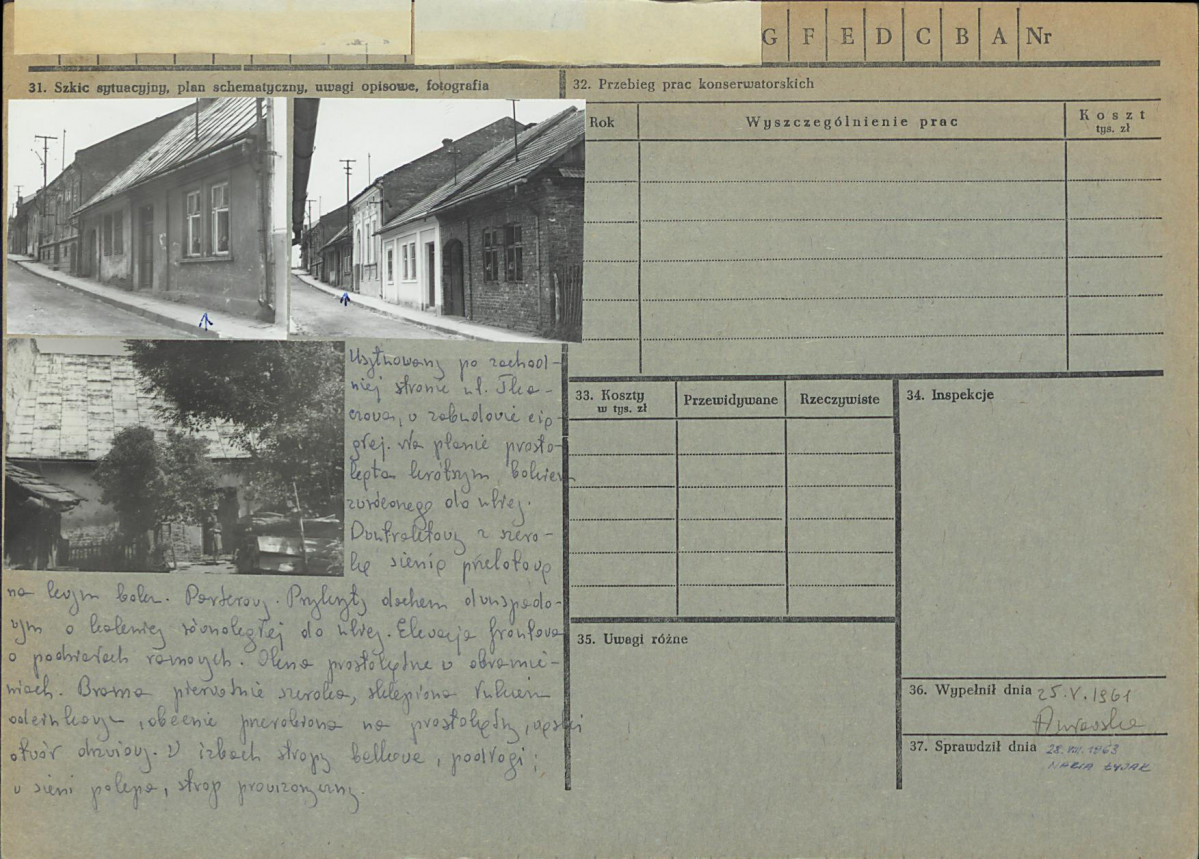 G F E D C B A Nr
31. Szkic sytuacyjny, plan schematyczny, uwagi opisowe, fotografia
32. Przebieg prac konserwatorskich
Rok
Wyszczególnienie prac
Koszt
tys. zł
Usytuowany po zachod-
niej stronie ul. Tka-
ckiej, w zabudowie cią-
głej. Na planie prosto-
kąta krótszym bokiem
zwróconego do ulicy.
Dwutraktowy z szero-
ką sienią przelotową
na lewym boku. Parterowy. Przykryty dachem dwuspado-
wym o kalenicy równoległej do ulicy. Elewacja frontowa
o podziałach ramowych. Okna prostokątne w obramie-
niach. Brama pierwotnie szeroka, sklepiona łukiem
odcinkowym, obecnie przerobiona na prostokątny, wąski
otwór drzwiowy. W izbach stropy belkowe, podłogi;
w sieni polepa, strop prowizoryczny.
33. Koszty
w tys. zł
Przewidywane
Rzeczywiste
34. Inspekcje
35. Uwagi różne
36. Wypełnił dnia 25.V.1961
37. Sprawdził dnia 28.VIII.1963
MARIA ŁYJAK